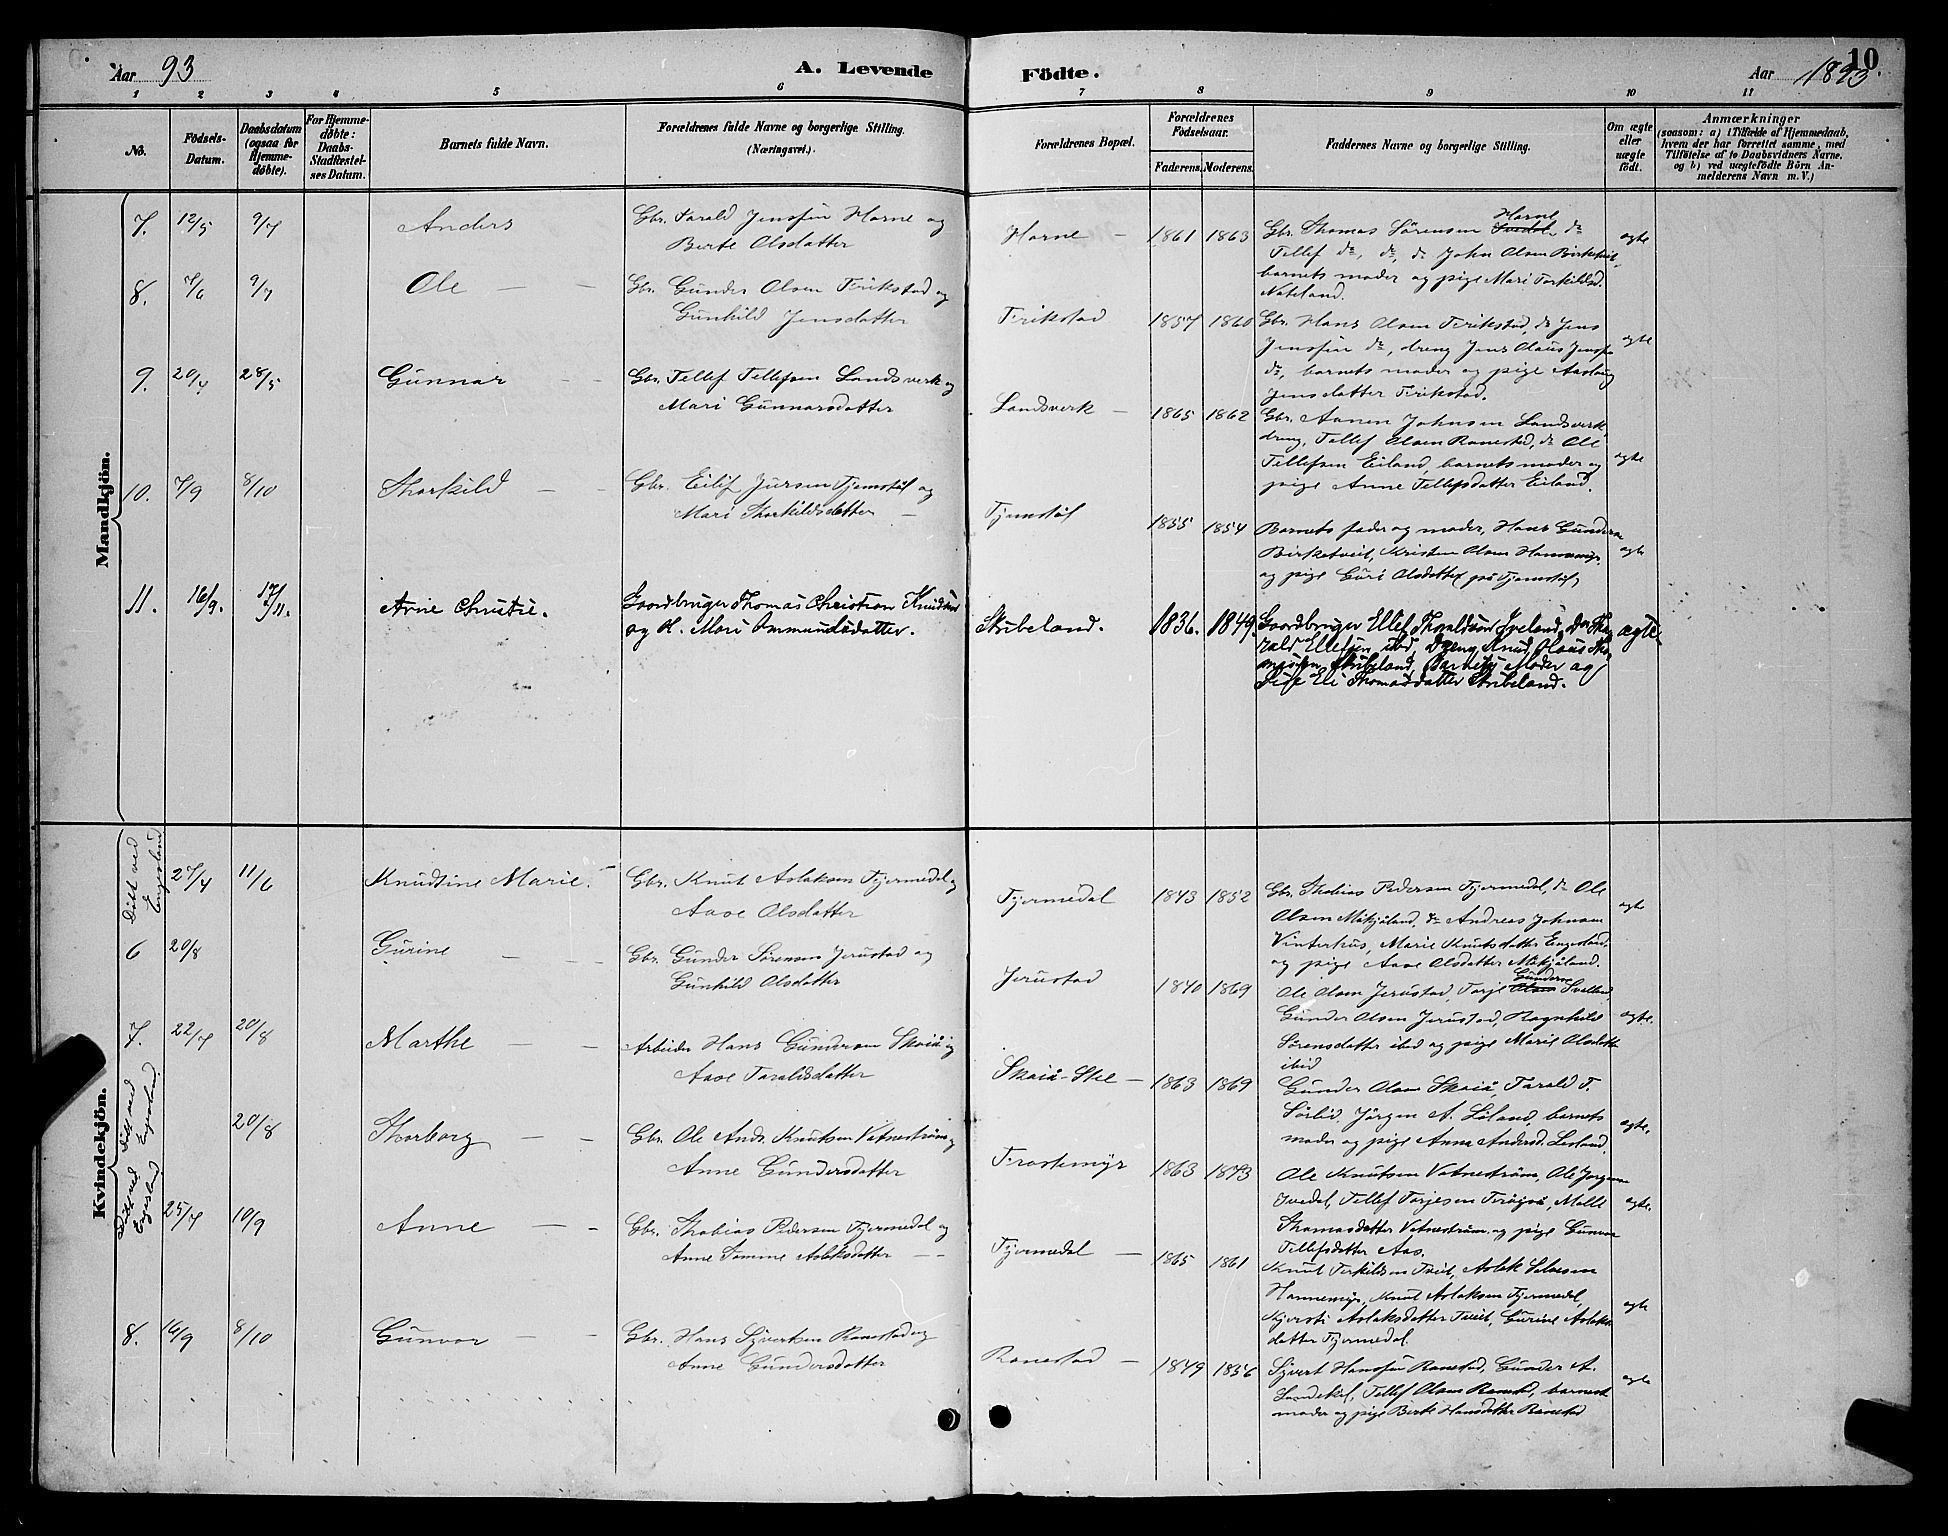 Aar 93
A. Levende
Födte.
Aar 1893.
10
1 2 3 4 5 6 7 8 9 10 11
No.
Födsels-
Datum.
Daabsdatum
(ogsaa for
Hjemme-
døbte).
For Hjemme-
døbte:
Daabs-
Stadfæstel-
ses Datum.
Barnets fulde Navn.
Forældrenes fulde Navne og borgerlige Stilling.
(Næringsvei.)
Forældrenes Bopæl.
Forældrenes
Födselsaar.
Faderens. Moderens.
Faddernes Navne og borgerlige Stilling.
Om ægte
eller
uægte
födt.
Anmærkninger
(saasom: a) i Tilfælde af Hjemmedaab,
hvem der har forrettet samme, med
Tilföielse af to Daabsvidners Navne,
og b) ved uægtefödte Börn An-
melderens Navn m. V.)
Mandkjön.
7. 12/5 9/7 Anders
Gbr. Tarald Jenssen Horne og
Berte Olsdatter
Horne 1861 1863
Gbr. Thomas Sörensen Horne do
Tellef do, do, do John Olsen Birketveit,
barnets moder og pige Mari Torkildsd.
Nateland.
ægte
8. 7/6 9/7 Ole
Gbr. Gunder Olsen Frikstad og
Gunhild Jensdatter
Frikstad 1857 1860
Gbr. Hans Olsen Frikstad, do Jens
Jenssen do, dreng Jens Olaus Jensen
do, barnets moder og pige Aaslaug
Jensdatter Frikstad.
ægte
9. 20/4 28/5 Gunnar
Gbr. Tellef Tellefsen Landsverk og
Mari Gunnarsdatter
Landsverk 1865 1862
Gbr. Aanen Johnsen Landsverk
dreng, Tellef Olsen Ranestad, do Ole
Tellefsen Eiland, barnets moder og
pige Anne Tellefsdatter Eiland.
ægte
10. 7/9 8/10 Thorkild
Gbr. Eilif Jursen Tjomstöl og
Mari Thorkildsdatter
Tjomstöl 1855 1854
Barnets fader og moder, Hans Gunders.
Birketveit, Kristen Olsen Hannemyr
og pige Guri Olsdatter på Tjomstöl,
ægte
11. 16/9. 17/11. Arne Christie.
Gaardbruger Thomas Christian Knudsen
og H. Mari Ommundsdatter.
Skibeland. 1836. 1849.
Gaardbruger Ellef Thoraldsen Iveland, do Tho-
rald Ellefsen ibd, Dreng Knud Haas Tho-
massen Skibeland, Barnets Moder og
Pige Eli Thomasdatter Skibeland.
ægte
Kvindekjön.
Döbt ved
Engesland
27/4 11/6 Knudsine Marie.
Gbr. Knut Aslaksen Tjermedal og
Aase Olsdatter
Tjermedal 1843 1852
Gbr. Thobias Pedersen Tjermedal, do Ole
Olsen Mikjåland, do Andreas Johnsen
Vinterhus, Marie Knutsdatter Engesland,
og pige Aase Olsdatter Mikjåland.
ægte
6 20/8 Gurine
Gbr. Gunder Sörensen Jerustad og
Gunhild Olsdatter
Jerustad 1840 1869
Ole Olsen Jerustad, Tarje Gunders.
Gunder Olsen Jerustad, Ragnhild
Sörensdatter ibid og pige Marie Olsdatter
ibid
ægte.
7. 22/7 20/8 Marthe
Arbeider Hans Gundersen Skaiå og
Aase Taraldsdatter
Skaiå-Stel 1863 1869
Gunder Olsen Skaiå, Tarald T.
Sörlid, Jörgen A. Liland, barnets
moder og pige Anna Andersd. Lisland.
ægte.
Döbt ved
Engesland
20/8 Thorborg
Gbr. Ole Andr. Knutsen Vatneström og
Anne Gundersdatter
Frostemyr 1863 1873
Ole Knutsen Vatneström, Ole Jorgensen
Ivedal, Tellef Tarjesen, Malli
Thomasdatter Vatneström og pige Gunvor
Tellefsdatter Aas.
ægte.
Döbt ved
Engesland
25/7 10/9 Anne
Gbr. Thobias Pedersen Tjermedal og
Anne Tomine Aslaksdatter
Tjermedal 1865 1861
Knut Terkildsen Tveit, Aslak Salvesen
Hannemyr, Knut Aslaksen Tjermedal,
Kjersti Aslaksdatter Tveit, Gurine Aslaks-
datter Tjermedal.
ægte
8. 16/9 8/10 Gunvor
Gbr. Hans Syvertsen Ranestad og
Anne Gundersdatter
Ranestad 1849 1856
Syvert Hanssen Ranestad, Gunder A.
Landskil, Tellef Olsen Ranestad, barnets
moder og pige Berte Hansdatter Ranestad
ægte